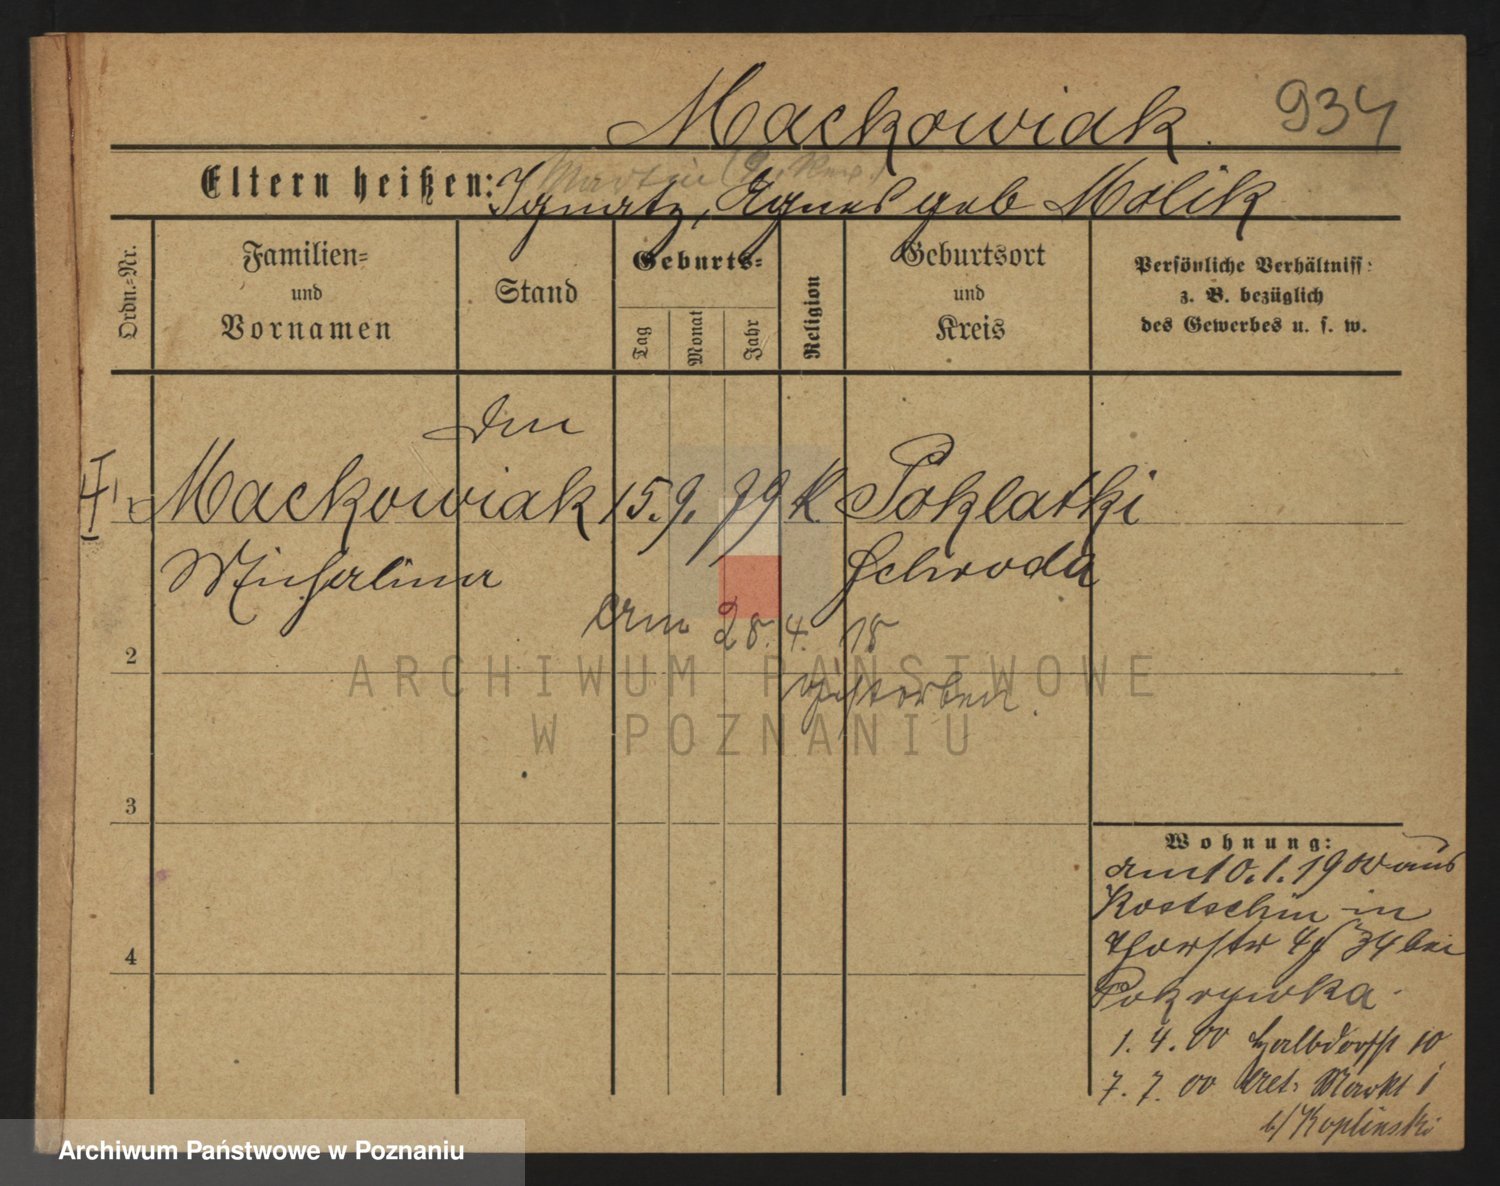 Mackowiak. 934
Eltern heißen: Ignatz, Agnes geb Molik
Martin
Ordn.-Nr.
Familien-
und
Vornamen
Stand
Geburts-
Tag
Monat
Jahr
Religion
Geburtsort
und
Kreis
Persönliche Verhältniss
z. B. bezüglich
des Gewerbes u. s. w.
Mackowiak 15. 9. 79 K. Poklatki
Michalina Schroda
am 28. 4. 18
verstorben.
2
3
4
Wohnung:
am 10. 1. 1900 aus
Kostschin in
Thorstr 34 bei
Pokrywka.
1. 4. 00 Halbdorfst 10
7. 7. 00 Alt. Markt 1
b/ Koplinski
ARCHIWUM PAŃSTWOWE
W POZNANIU
Archiwum Państwowe w Poznaniu